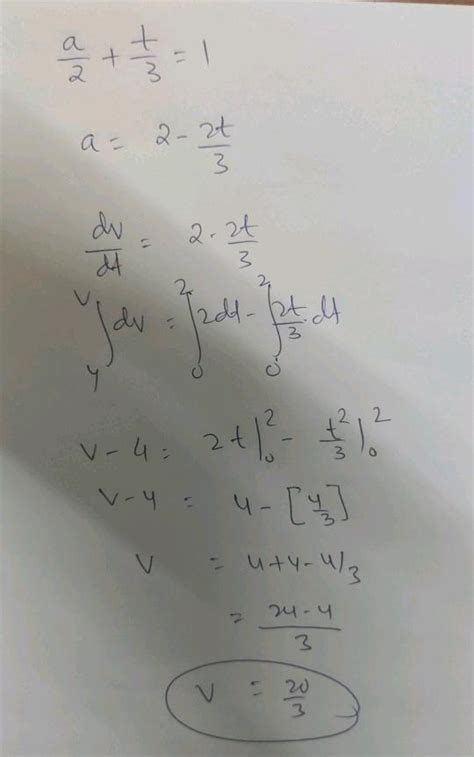 a/2 + t/3 = 1
a = 2 - 2t/3
dv/dt = 2 - 2t/3
∫_4^v dv = ∫_0^2 2dt - ∫_0^2 2t/3 . dt
v - 4 = 2t|_0^2 - t²/3|_0^2
v - 4 = 4 - [4/3]
v = 4 + 4 - 4/3
= 24 - 4 / 3
v = 20/3